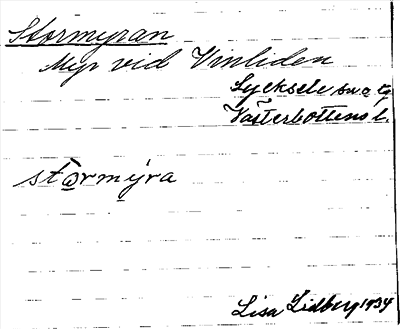 Stormyran
Myr vid Vinliden
Lycksele sn
Västerbottens l.
stormyra
Lisa Lidberg 1934